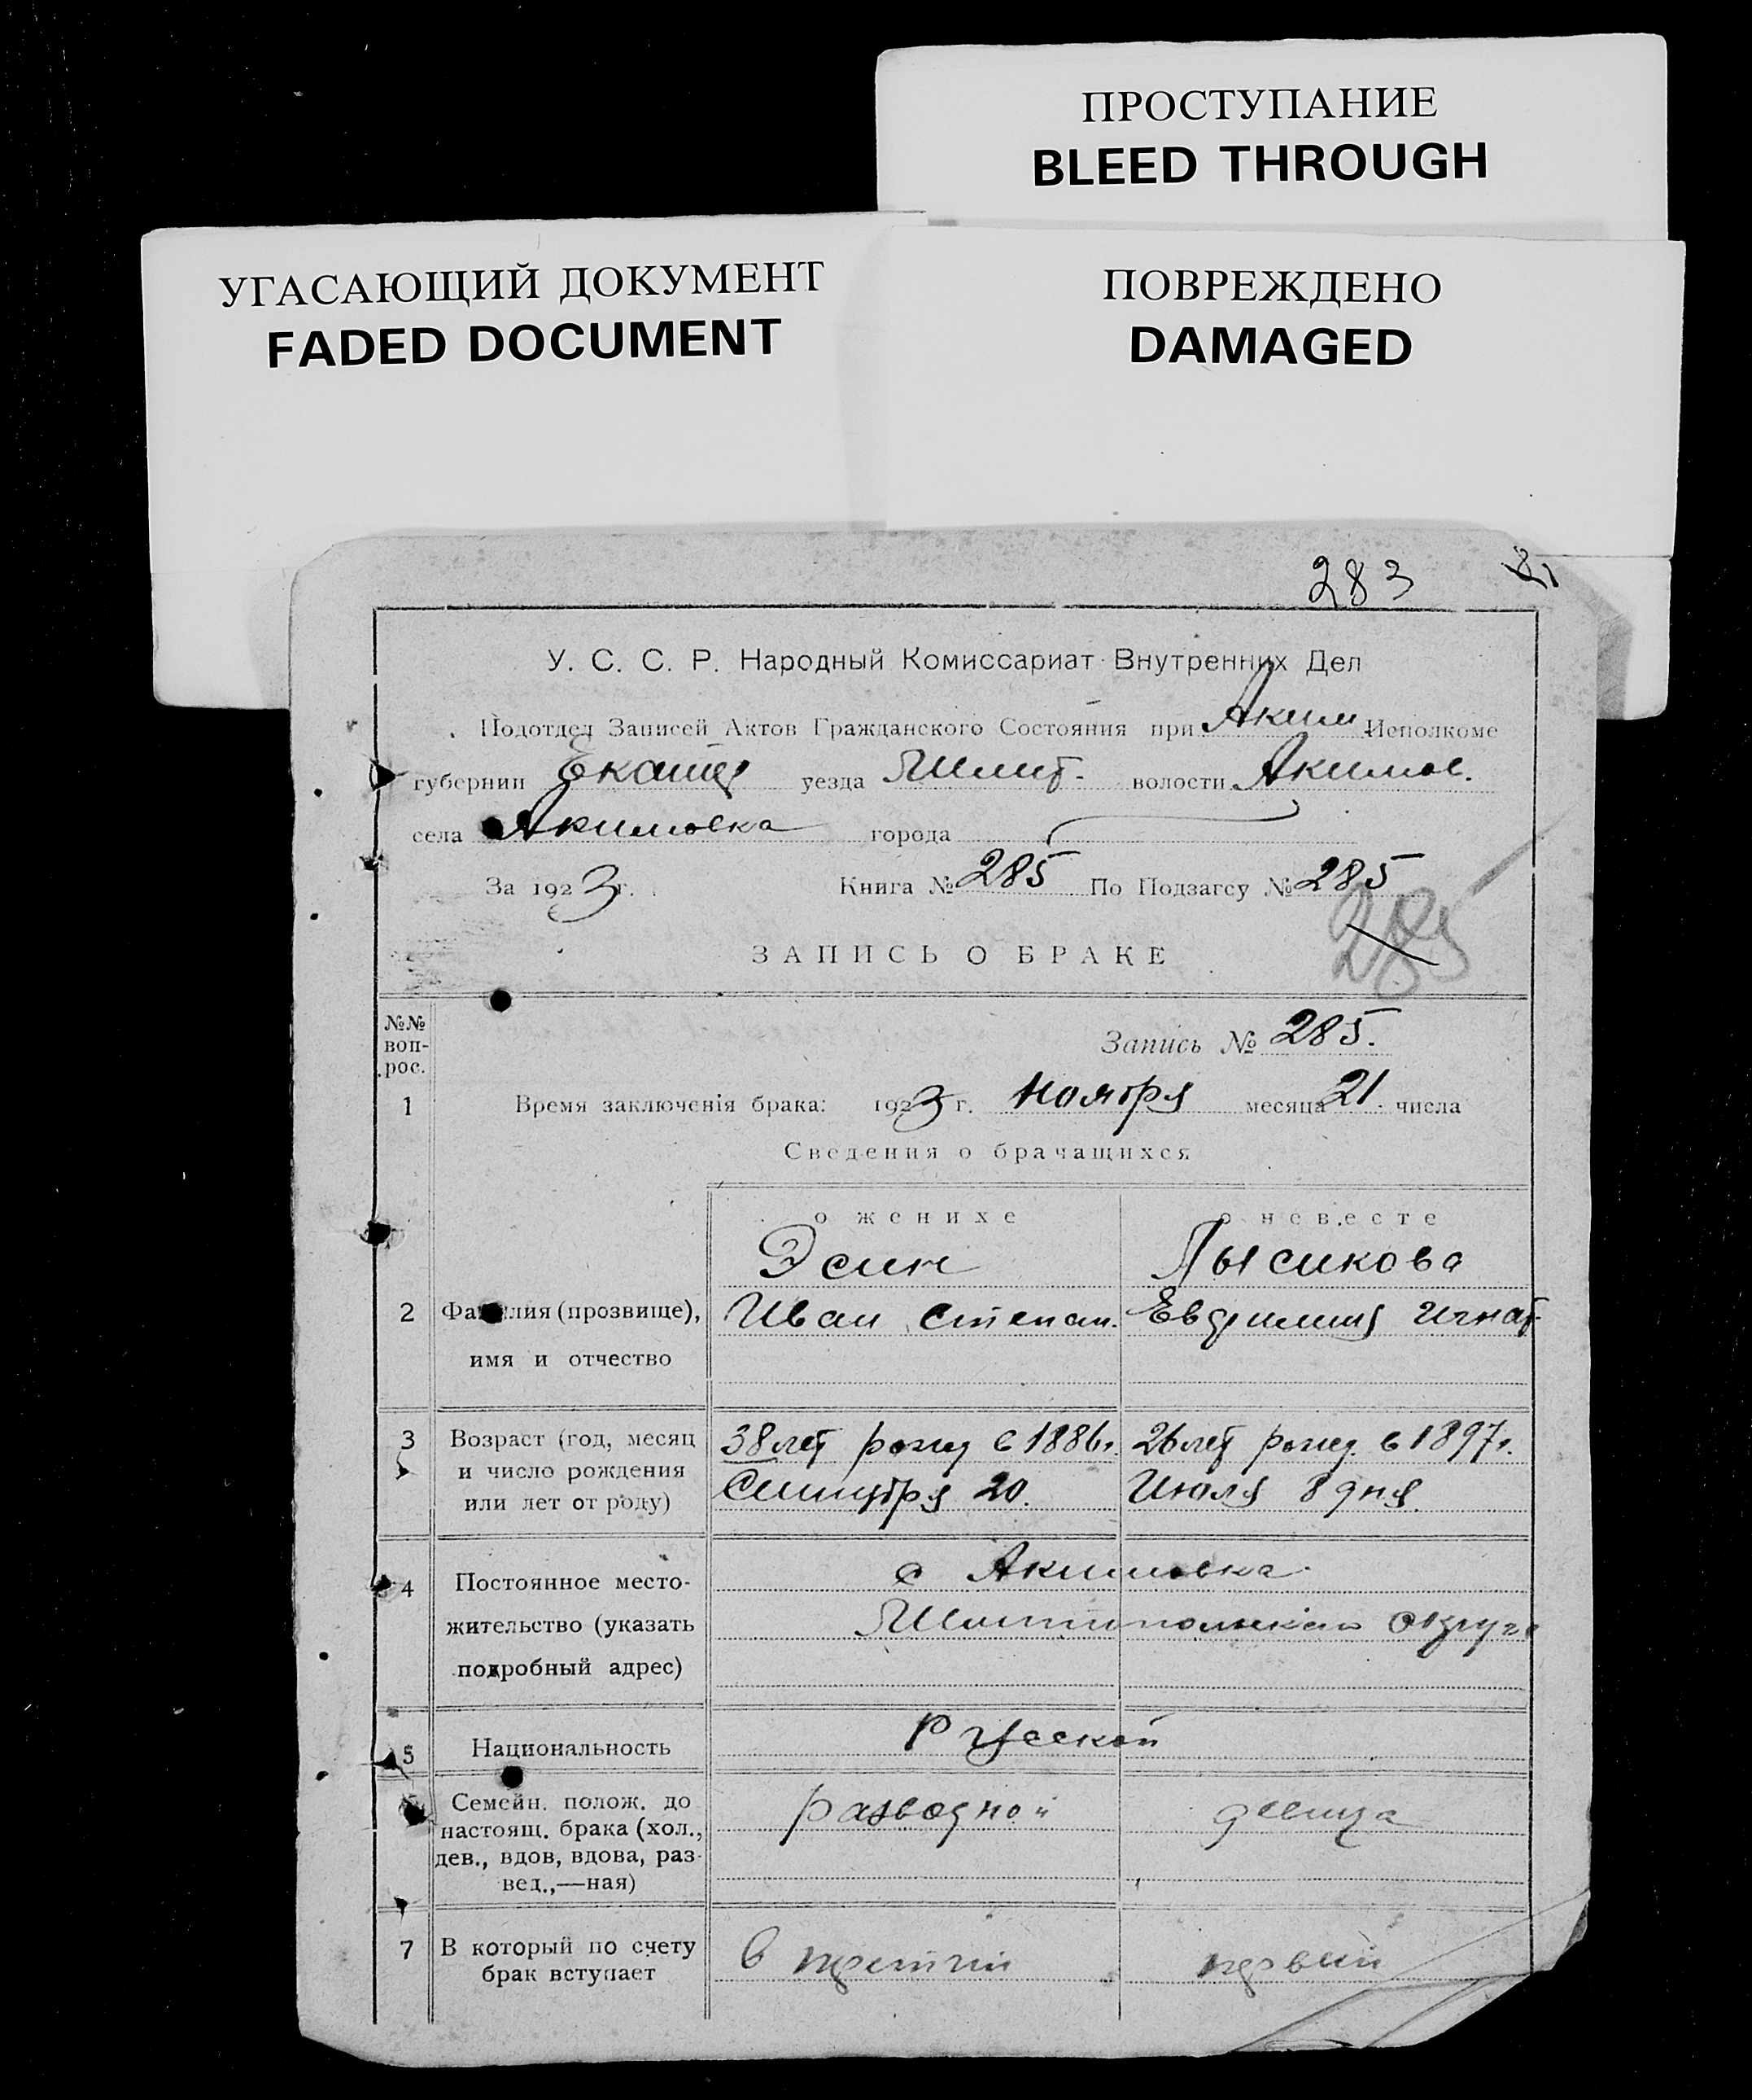 ПРОСТУПАНИЕ
BLEED THROUGH
УГАСАЮЩИЙ ДОКУМЕНТ
FADED DOCUMENT
ПОВРЕЖДЕНО
DAMAGED
283
У. С. С. Р. Народный Комиссариат Внутренних Дел
Подотдел Записей Актов Гражданского Состояния при Аким Исполкоме
губернии Екатер уезда Мелит. волости Акимов.
села Акимовка города
За 1923 г. Книга № 285 По Подзагсу № 285
285
ЗАПИСЬ О БРАКЕ
№№ воп-рос.
Запись № 285.
1 Время заключенія брака: 1923 г. Ноября месяца 21 числа
Сведения о брачащихся
о женихе о невесте
Эсин Лысикова
2 Фамилия (прозвище), Иван Степан. Евдокимия Игнат.
имя и отчество
3 Возраст (год, месяц 38 лет рожд в 1886 г. 26 лет рожд. в 1897 г.
и число рождения Сентября 20. Июля 8 дня.
или лет от роду)
4 Постоянное место- с Акимовка
жительство (указать Мелитопольского округа
подробный адрес)
5 Национальность Русской
Семейн. полож. до разводной девица
настоящ. брака (хол.,
дев., вдов, вдова, раз-
вед.,—ная)
7 В который по счету в третий первый
брак вступает